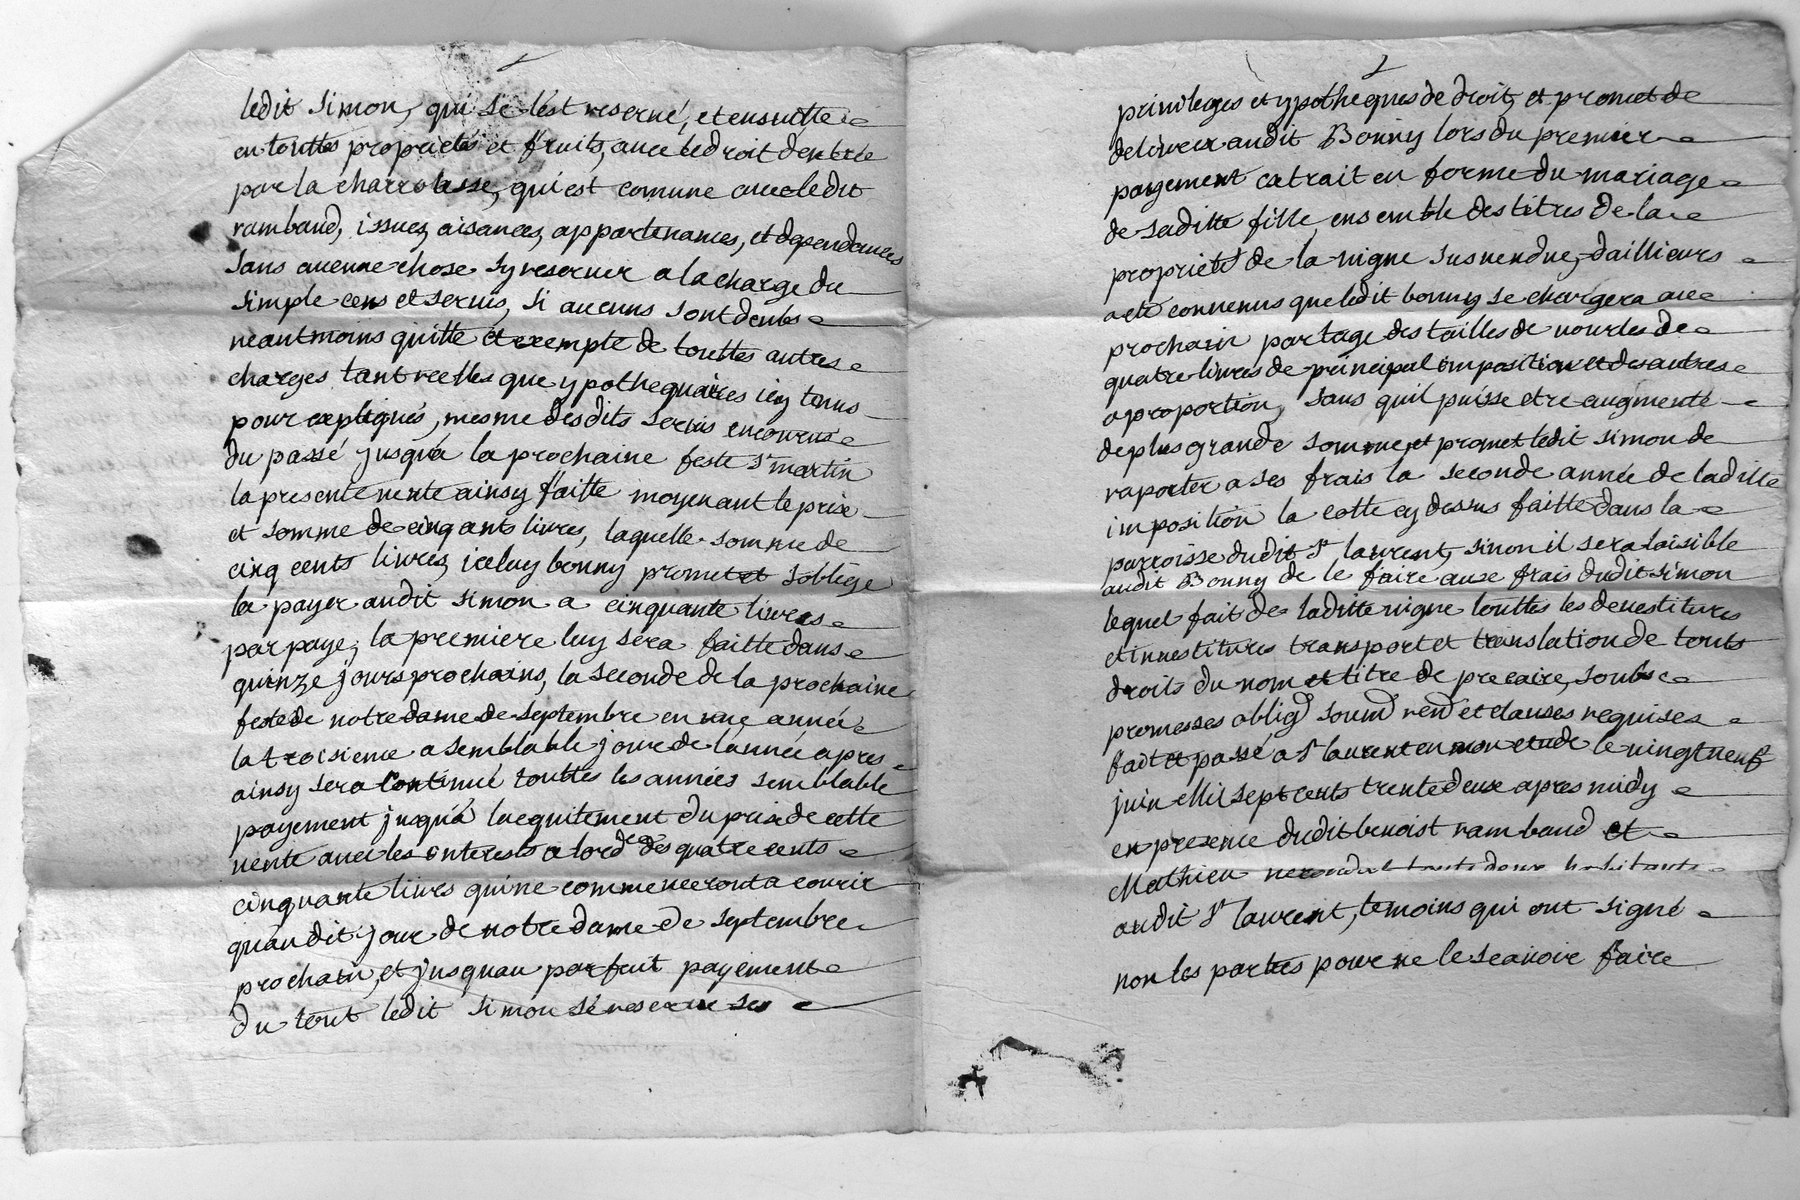 ledit Simon, qui se lest reservé, et ensuitte
en touttes proprietés et fruits, avec le droit dentrée
par la charrolasse, qui est comune avec ledit
rambaud, issues, aisances, appartenances, et dependances
sans aucune chose sy reserver a la charge du
simple cens et servis, si aucuns sont deubs
neantmoins quitte et exempte de touttes autres
charges tant reelles que ypothequaires icy tenus
pour expliqués, mesme desdits servis encourus
du passé jusquá la prochaine feste St martin
la presente vente ainsy faitte moyenant le prix
et somme de cinq cents livres, laquelle somme de
cinq cents livres, iceluy bonny promet et soblige
la payer audit simon a cinquante livres
par paye, la premiere luy sera faitte dans
quinze jours prochains, la seconde de la prochaine
feste de notre dame de septembre en une année
la troisieme a semblable jour de lannée apres
ainsy sera continué touttes les années semblable
payement jusquá lacquitement du prix de cette
vente avec les interests a lord^ce des quatre cents
cinquante livres qui ne commenceront a courir
quaudit jour de notre dame de septembre
prochain, et jusquau parfait payement
du tout ledit simon se reserve ses
privileges et ypotheques de droit, et promet de
delivrer audit Bonny lors du premier
payement extrait en forme du mariage
de saditte fille, ensemble des titres de la
proprieté de la vigne susvendue, dailleurs
a eté convenus que ledit bonny se chargera au
prochain partage des tailles de vourles de
quatre livres de principal imposition et des autres
a proportion, sans quil puisse etre augmenté
de plus grande somme, et promet ledit simon de
raporter a ses frais la seconde année de laditte
imposition la cotte cy dessus faitte dans la
parroisse dudit St laurent, sinon il sera loisible
audit Bonny de le faire aux frais dudit simon
lequel fait de laditte vigne touttes les devestitures
et investitures transport et translation de touts
droits du nom et titre de precaire, soubs
promesses obligd soumd rend et clauses requises
fait et passé a St laurent en mon etude le vingt neuf
juin Mil sept cents trente deux apres midy
en presence dudit benoist rambaud et
Mathieu touts deux habitants
audit St laurent, temoins qui ont signé
non les parties pour ne le sçavoir faire